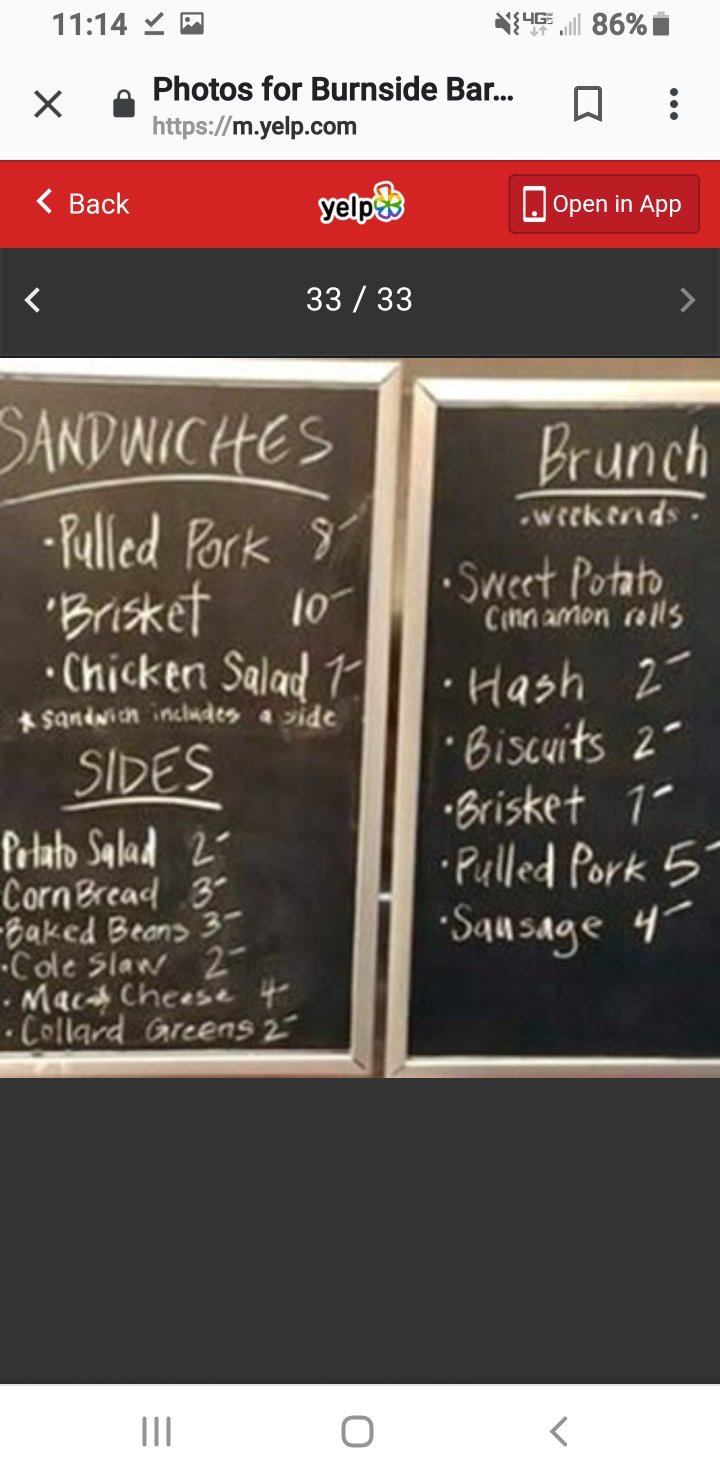 11:14
4GE 86%
Photos for Burnside Bar...
https://m.yelp.com
Back
yelp
Open in App
33 / 33
SANDWICHES
• Pulled Pork 8-
• Brisket 10-
• Chicken Salad 7-
* sandwich includes a side
SIDES
Potato Salad 2-
Corn Bread 3-
• Baked Beans 3-
• Cole Slaw 2-
• Mac & Cheese 4-
• Collard Greens 2-
Brunch
• weekends •
• Sweet Potato
Cinnamon rolls
• Hash 2-
• Biscuits 2-
• Brisket 7-
• Pulled Pork 5-
• Sausage 4-